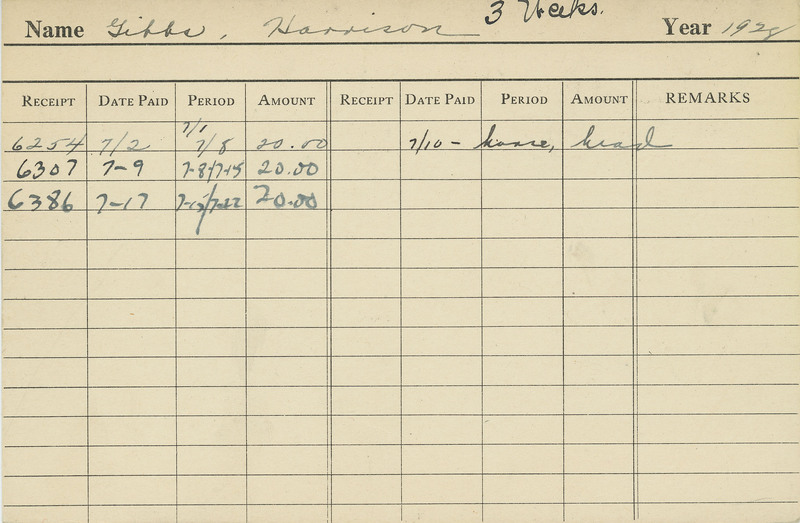 3 Weeks.
Name Gibbs, Harrison Year 1928
RECEIPT DATE PAID PERIOD AMOUNT RECEIPT DATE PAID PERIOD AMOUNT REMARKS
7/1
6254 7/2 7/8 20.00 7/10 - horse, head
6307 7-9 7-8/7-15 20.00
6386 7-17 7-15/7-22 20.00